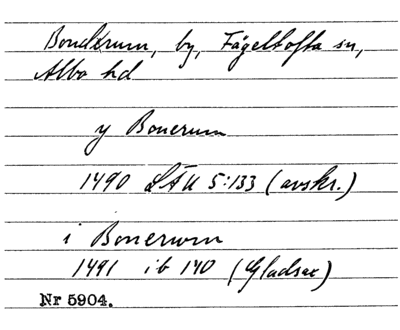 Bondrum, by, Fågeltofta sn,
Albo hd
y Bonerum
1490 LÄU 5:133 (avskr.)
i Bonerwm
1491 ib 140 (Gladsax)
Nr 5904.